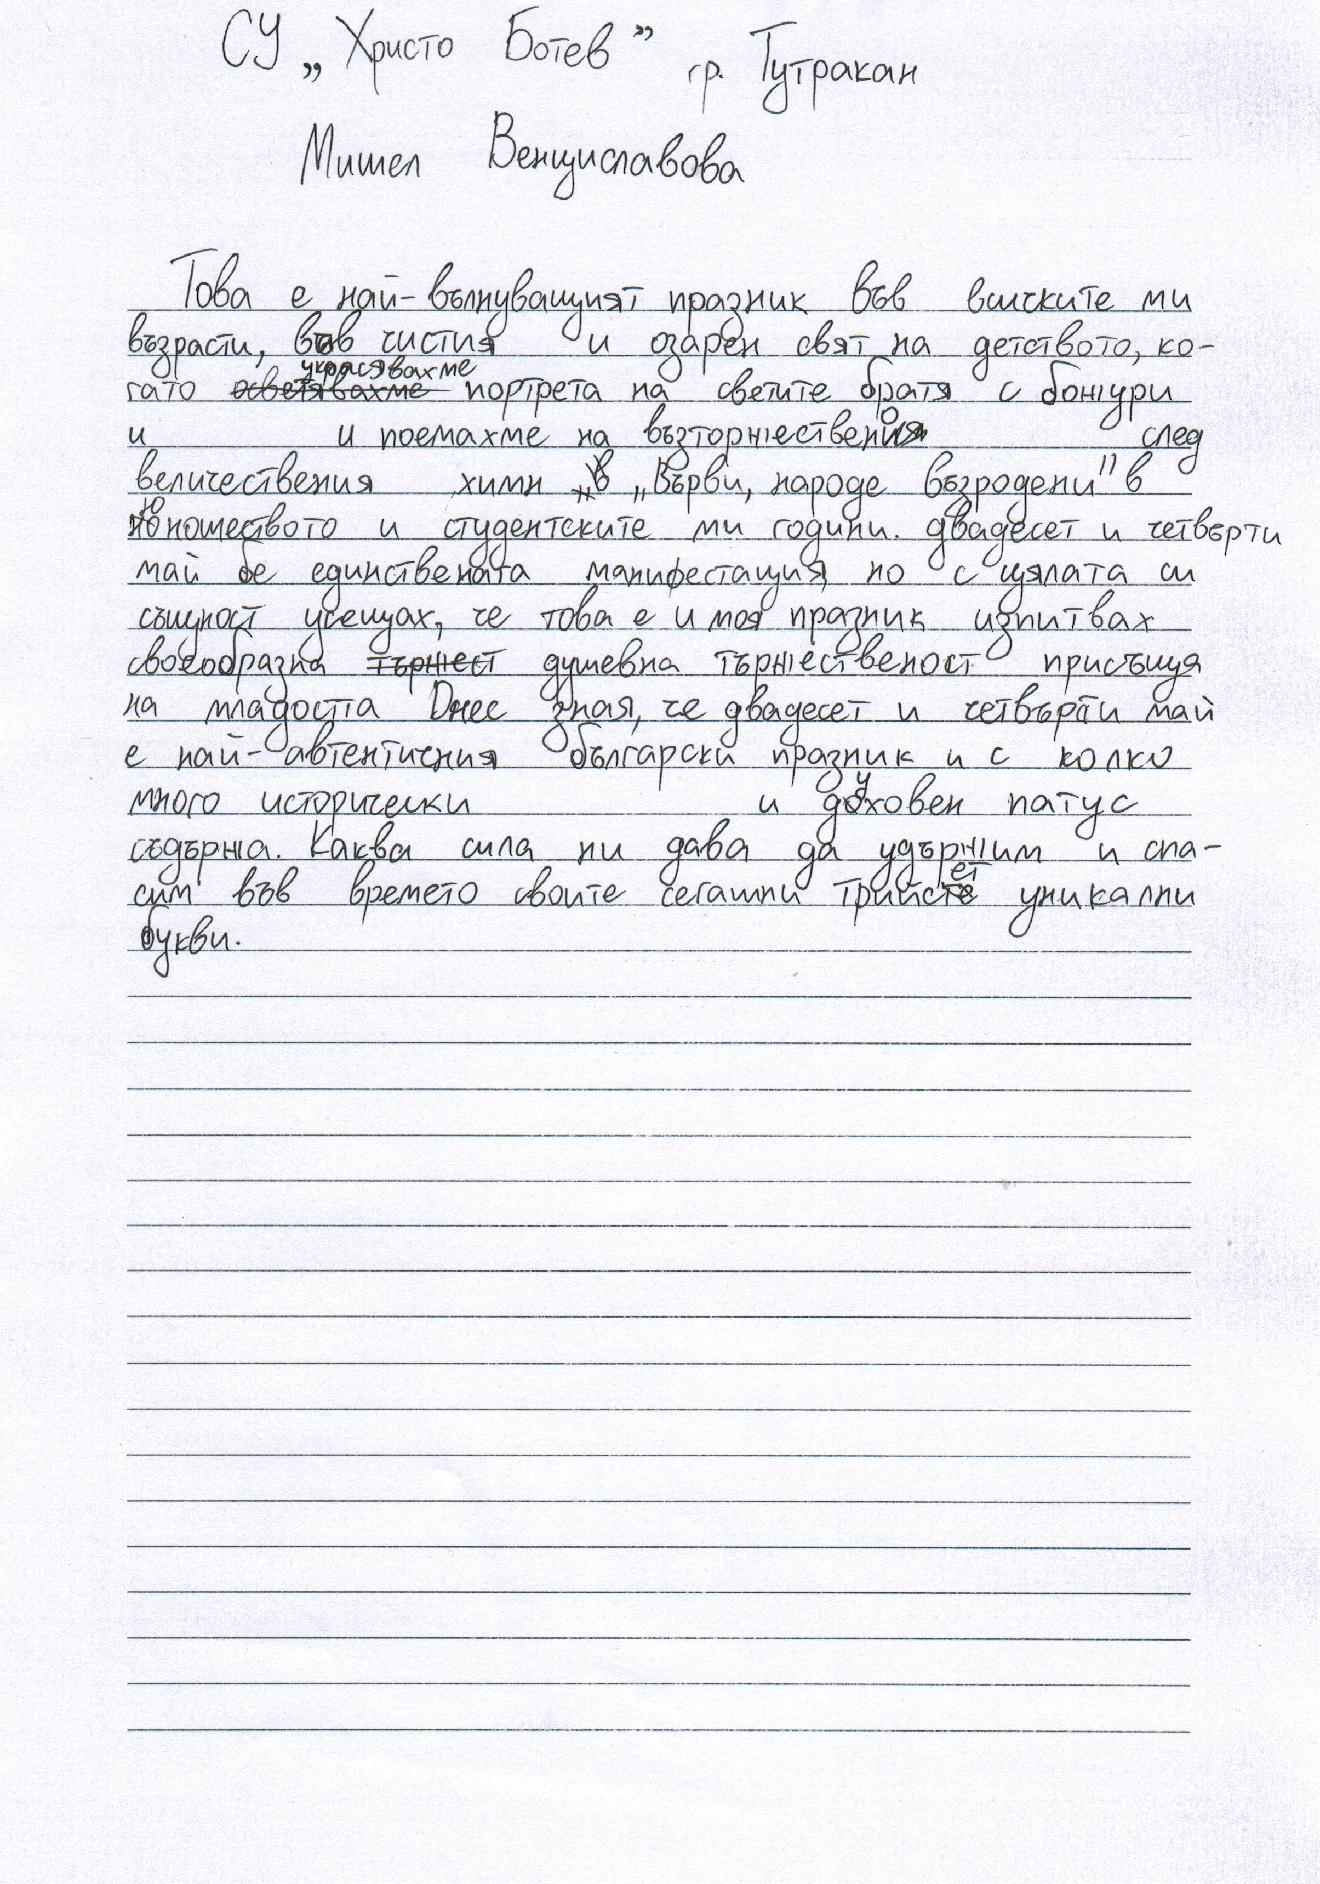 СУ „Христо Ботев” гр. Тутракан
Мишел Венциславова
Това е най-вълнуващият празник във всиските ми
възрасти, във чистия и озарен свят на детството, ко-
гато украсявахме портрета на светите братя с бонгури
и и поемахме на възторжествено след
величествения химн „Върви, народе възродени" в
юношеството и студентските ми години. двадесет и четвърти
май бе единствената манифестация, но с цялата си
същност усещах, че това е и моя празник изпитвах
своеобразна душевна тържественост присъща
на младостта Днес зная, че двадесет и четвърти май
е най-автентичния български празник и с колко
много исторически и духовен патус
съдържа. Каква сила ни дава да удържим и спа-
сим във времето своите сегашни трийсет уникални
букви.